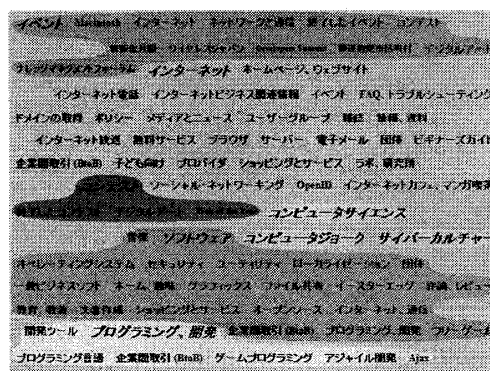 イベント Macintosh インターネット ネットワークと通信 終了したイベント コンテスト
ワイヤレスジャパン Developers Summit デジタルアート
インターネット ホームページ、ウェブサイト
インターネット電話 インターネットビジネス関連情報 イベント FAQ、トラブルシューティング
ドメインの取得 ポリシー メディアとニュース ユーザーグループ 雑誌 情報、資料
インターネット放送 無料サービス ブラウザ サーバー 電子メール 団体 ビギナーズガイド
企業間取引 (BtoB) 子ども向け プロバイダ ショッピングとサービス ラボ、研究所
コンテスト ソーシャル・ネットワーキング OpenID インターネットカフェ、マンガ喫茶
終了したコンテスト デジタルアート コンピュータサイエンス
音楽 ソフトウェア コンピュータジョーク サイバーカルチャー
オペレーティングシステム セキュリティ ユーティリティ ローカライゼーション 団体
一般ビジネスソフト ホーム、趣味 グラフィックス ファイル共有 イースターエッグ 評論、レビュー
教育、教養 文書作成 ショッピングとサービス オープンソース インターネット、通信
開発ツール プログラミング、開発 企業間取引 (BtoB) プログラミング、開発 フリーゲーム
プログラミング言語 企業間取引 (BtoB) ゲームプログラミング アジャイル開発 Ajax